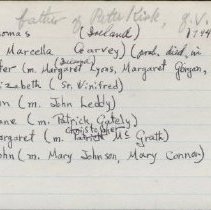 father of Peter Kirk, q.v.
omas (Ireland) 1794
Marcella Garvey) (prob. died, in
Ireland)
ter (m. Margaret Lyons, Margaret Horgan,
izabeth (Sr. Winifred)
n (m. John Leddy)
ne (m. Patrick Gately)
Christopher
argaret (m. Patrick McGrath)
ohn (m. Mary Johnson, Mary Connor)